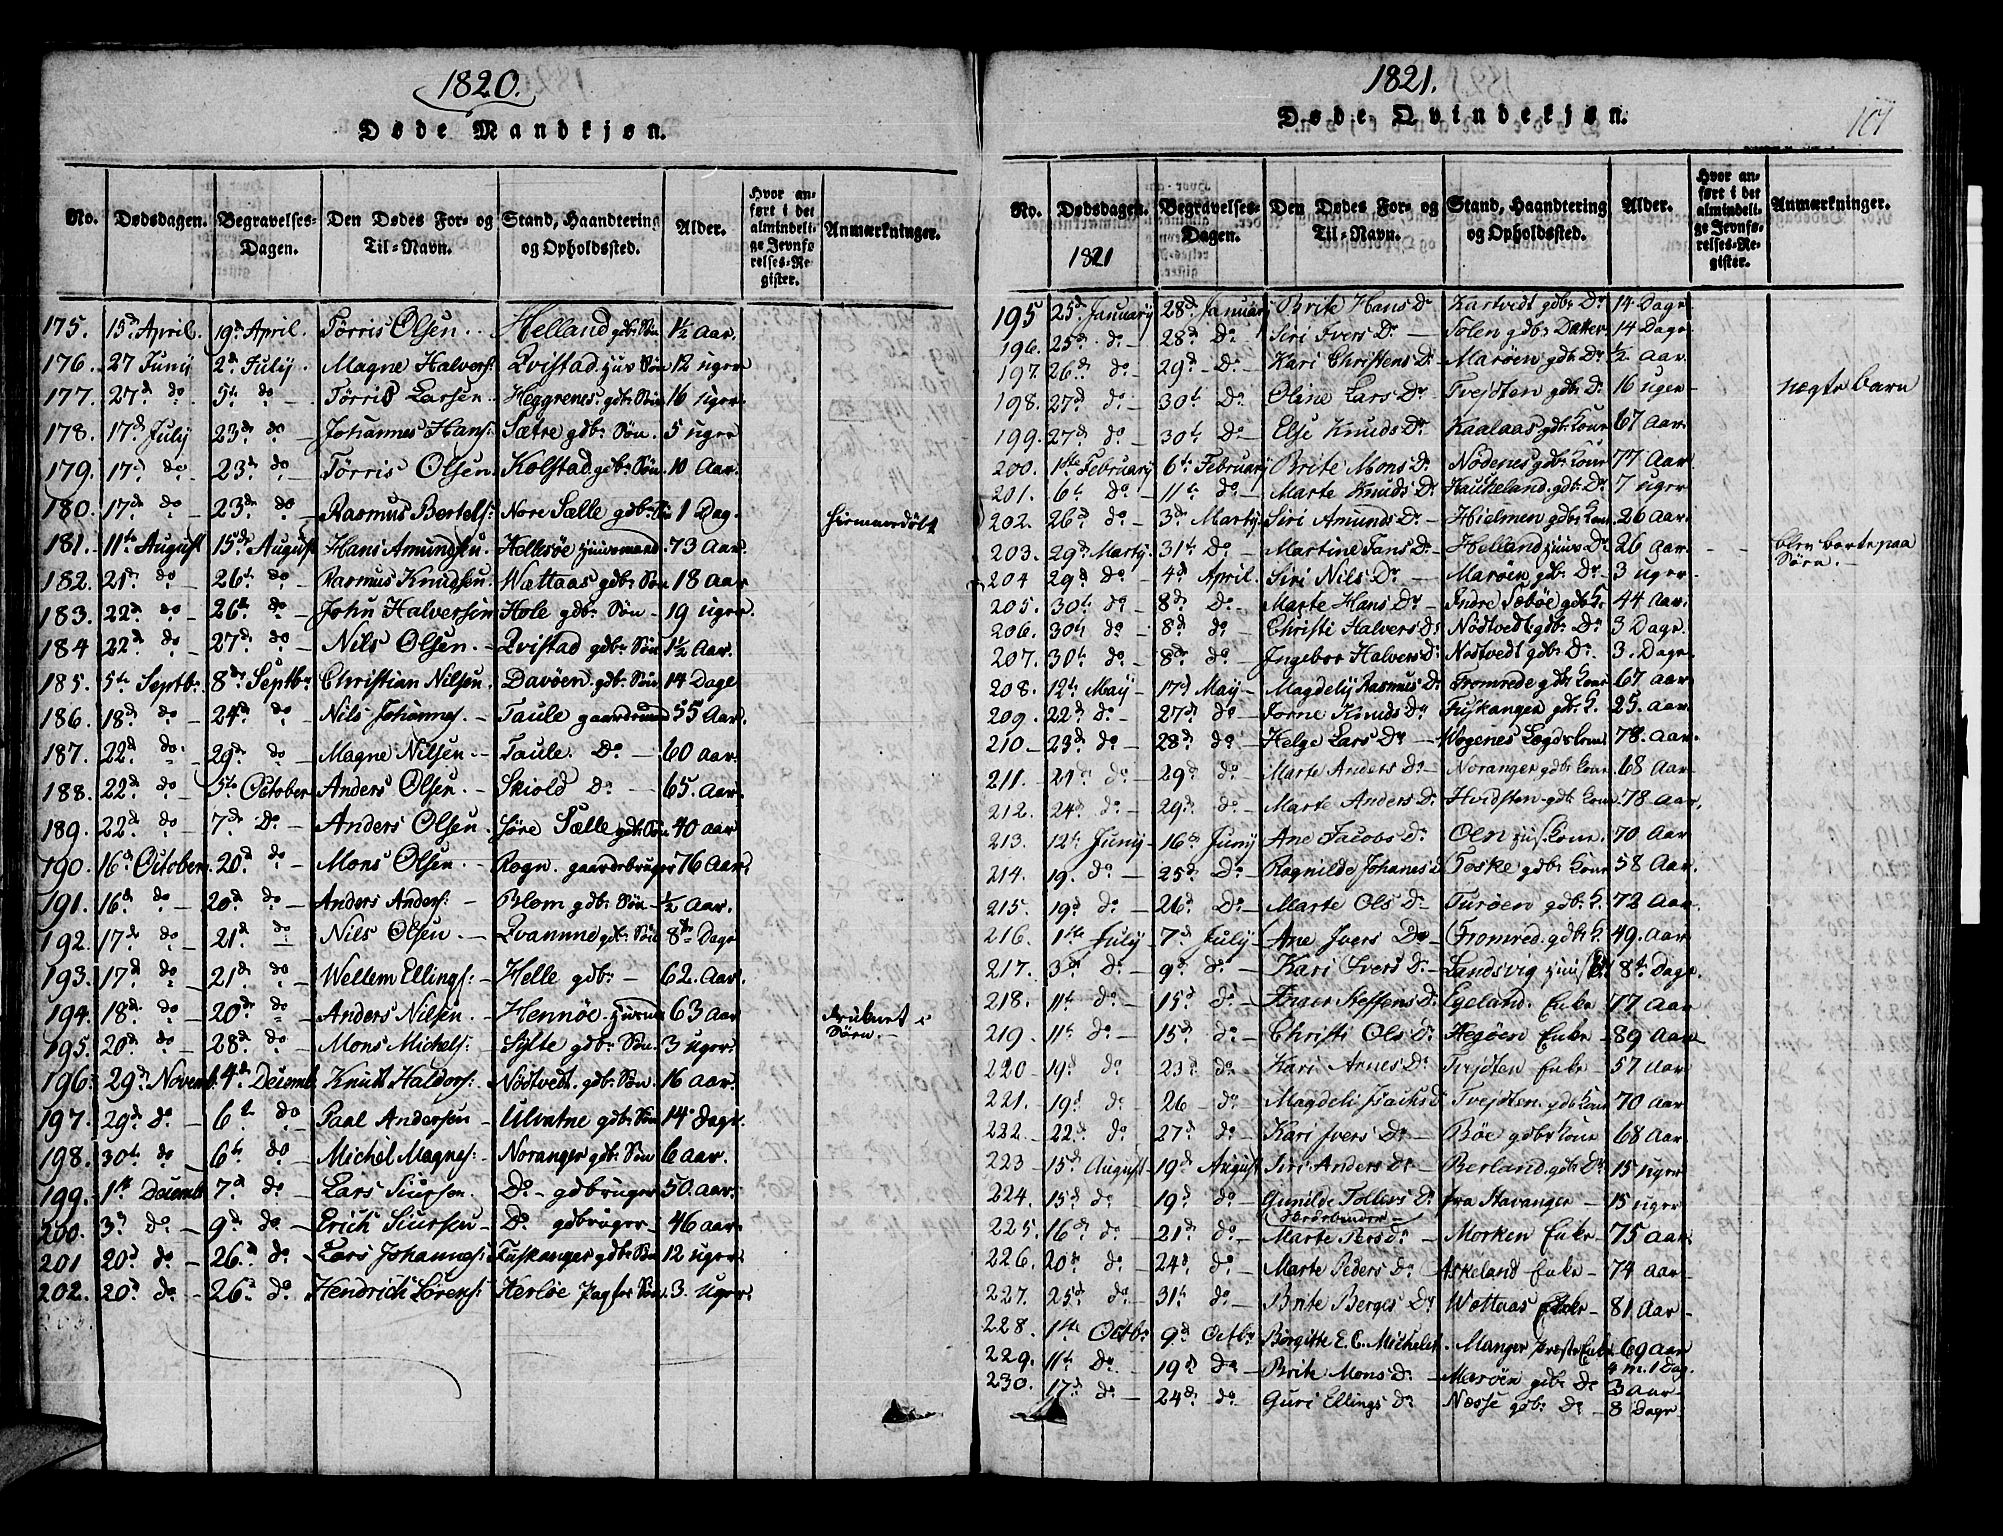 1820.
Døde Mandkjøn.
No. Dødsdagen. Begravelses-Dagen. Den Dødes For- og Til-Navn. Stand, Haandtering og Opholdssted. Alder. Hvor anført i det almindelige Jevnførelses-Register. Anmærkninger.
175. 15d April 19d April. Tørris Olsen Helland gdbr Søn 1½ Aar.
176. 27 Juny 2d July. Magne Halvors: Qvistad huus Søn 12 uger
177. 27d do 5te do Tørris Larsen Heggrenes gdbr Søn 16 uger
178. 17d July 23de do Johannes Hans: Sætre gdbr Søn. 5 uger
179. 17d do 23de do Tørris Olsen Kolstad gdbr Søn 10 Aar.
180. 17de do 23de do Rasmus Bertels: Nore Sælle gdbr Søn 1 Dag. hiemmedøbt
181. 11te August 15de August Hans Amundsen Hellesøe huusmand 73 Aar.
182. 21d do 26te do Rasmus Knudsen Wættaas gdbr Søn 18 Aar
183. 22d do 26te do John Halversen Hole gdbr Søn 19 uger.
184 22d do 27de do Nils Olsen Qvistad gdbr Søn 1½ Aar.
185. 5te Septbr 8de Septbr Christian Nilsen Davøen gdbr Søn 14 Dage
186. 18d do 24de do Nils Johannes Taule gaardmand 55 Aar.
187. 22d do 29de do Magne Nilsen Taule. Do 60 Aar.
188. 22d do 5te October Anders Olsen Skiold Do 65. Aar.
189. 22d do 7de Do Anders Olsen Søre Sælle gdbr Søn 40 Aar
190. 16d October 20d do Mons Olsen Rogn. gaardbruger 76 Aar.
191. 16d do 20d do Anders Anders: Blom gdbr Søn ½ Aar.
192. 17de do 21d do Nils Olsen Qvamme gdbr Søn 8te Dage
193. 17d do 21d do Wellem Ellings: Helle gdbr 62. Aar.
194. 18d do 20de do Anders Nilsen Hennøe huusmand 63 Aar druknet i Søen.
195. 20d do 28de do Mons Michels: Sylte gdbr Søn 3 uger.
196. 29de Novemb. 4de Decemb. Knudt Haldors: Nødtvedt. gdbr Søn 16 Aar.
197. 29de do 6te do Paal Andersen Ulvatne gdbr Søn 14 Dage.
198. 30te do 6te do Michel Magnes: Noranger gdbr Søn 6 Aar.
199. 1te Decemb 7de do Lars Siursen Do gdbruger 50. Aar.
200. 3de do 9de do Erich Siursen Do gdbruger 46 Aar
201 20d do 26d do Lars Johannes: Fuskanger gdbr Søn 12 uger
202. 20d do 26d do Hendrich Sørens: Herløe Søn 3. uger.
203.
1821.
Døde Qvindekjøn.
107
No. Dødsdagen. Begravelses-Dagen. Den Dødes For- og Til-Navn. Stand, Haandtering og Opholdssted. Alder. Hvor anført i det almindelige Jevnførelses-Register. Anmærkninger.
1821
195 25d January 28d January Brite Hans Dr Kartvedt gdbr Dr 14 Dage
196. 25d do 28d Do Siri Ivers Dr Solen gdbr Datter 14 Dage
197. 26d do 29d Do Kari Christens Dr Marøen gdbr Dr ½ Aar
198. 27d do 30te Do Oline Lars Dr Tvejten gdbr Dr 16 uger nægte Barn
199. 27d do 30te Do Else Knuds Dr Kaalaas gdbr Kone 67 Aar.
200. 1te February 6te February Brite Mons Dr Nødenes gdbr Kone 77 Aar
201. 6te do 11te do Marte Knuds Dr Haukeland. gdbr Dr 7 uger
202. 26d do 3de Marty Siri Amunds Dr Hielmen gdbr Kone 26 Aar
203. 29d Marty 31te do Martine Jans Dr Helland huus Dr 26 Aar. blev borte paa Søen.
204 29d do 4d April. Siri Nils Dr Marøen gdbr Dr 3 uger
205. 30te do 8de Do Marte Hans Dr Indre Sæbøe gdbr K. 44 Aar.
206. 30te do 8d do Christi Halvers Dr Nødtvedt gdbr Dr 3 Dage.
207. 30te do 8de do Ingebor Halvers Dr Nødtvedt gdbr Dr 3. Dage
208. 12te May 17d May Magdely Rasmus Dr Fromrede gdbr Kone 67 Aar
209. 22d do 27de do Jorne Knuds Dr Fuskanger gdbr K. 25. Aar
210 23d do 28d do Helge Lars Dr Wogenes Lægdslem 78. Aar.
211. 24d do 29d do Marte Anders Dr Noranger gdbr Kone 68 Aar
212. 24d do 29d do Marte Anders Dr Hvidsten gdbr Kone 78 Aar.
213. 12te Juny 16de Juny Ane Jacobs Dr Olen huus Kone. 70 Aar
214. 19. do 25de Do Ragnilde Johanes D Toske gdbr Kone 58 Aar.
215. 19d do 26d Do Marte Ols Dr Turøen gdbr K. 72 Aar
216. 1te July 7d July Ane Ivers Dr Fromred. gdbr K. 49. Aar
217. 3d do 9de do Kari Ivers Dr Landsvig huus 8te Dage
218. 11te do 15d do Inger Steffens Dr Egeland. Enke 77 Aar
219. 11te do 15de do Christi Ols Dr Hegøen Enke 89 Aar
220 19d do 23de do Kari Arnes Dr Tvejten Enke 57 Aar
221. 19d do 26 do Magdeli Isachs D Tvejten. gdbr Kone 70 Aar
222 22d do 27d do Kari Ivers Dr Bøe gdbr Kone 68 Aar
223 15d August 19d August Siri Anders Dr Berland gdbr Dr 15 uger
224. 15d do 19d do Gunilde Tollevs Dr fra Stavanger 15 uger
225. 16de do 21de do Marte Pers dr Morken Enke 75 Aar.
226. 20de do 24de do Marte Peders Dr Askeland Enke 74 Aar
227. 25d do 31te do Brite Berges Dr Wættaas Enke 81 Aar
228. 1te Octbr 9de Octbr Birgitte E.C. Michelet. Manger Præste Enke 69 Aar 4 m. 1 Dag.
229. 11te Do 19de do Brite Mons Dr Marøen gdbr Dr 3 Aar
230. 17de do 24de do Guri Ellings Dr Næsse gdbr Dr 8 Dage